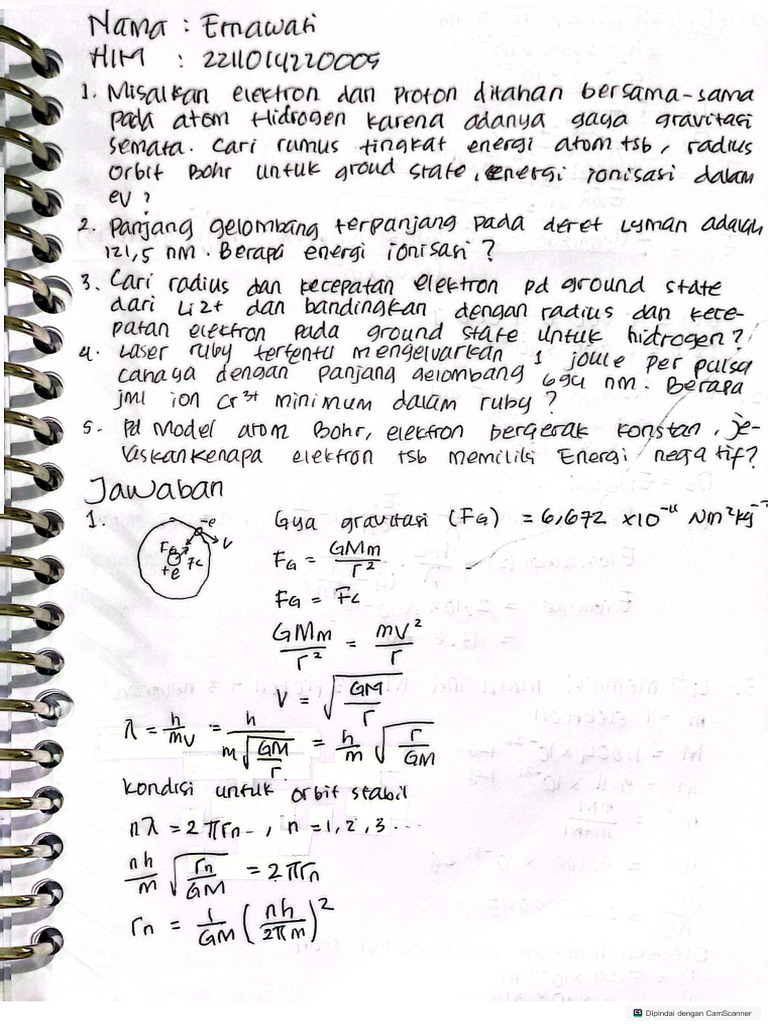 Nama : Ernawati
HIM : 2211014220009
1. Misalkan elektron dan Proton ditahan bersama-sama
pada atom Hidrogen karena adanya gaya gravitasi
semata. Cari rumus tingkat energi atom tsb, radius
orbit Bohr untuk groud state, energi ionisasi dalam
eV ?
2. Panjang gelombang terpanjang pada deret Lyman adalah
121,5 nm. Berapa energi ionisasi ?
3. Cari radius dan kecepatan elektron pd ground state
dari Li2+ dan bandingkan dengan radius dan kece-
patan elektron pada ground state untuk hidrogen ?
4. Laser ruby tertentu mengelvarkan 1 joule per pulsa
cahaya dengan panjang gelombang 694 nm. Berapa
jml ion Cr³⁺ minimum dalam ruby ?
5. Pd Model atom Bohr, elektron bergerak konstan, je-
laskan kenapa elektron tsb memiliki Energi negatif?
Jawaban
1. -e
FG Fc v
+e
Gya gravitasi (FG) = 6,672 × 10⁻¹¹ Nm²kg⁻²
FG = GMm / r²
FG = Fc
GMm / r² = mv² / r
V = √(GM / r)
λ = h / mv = h / m√(GM / r) = h / m √(r / GM)
kondisi untuk orbit stabil
nλ = 2πrn, n = 1, 2, 3 ...
nh / m √(rn / GM) = 2πrn
rn = 1 / GM (nh / 2πm)²
CS Dipindai dengan CamScanner